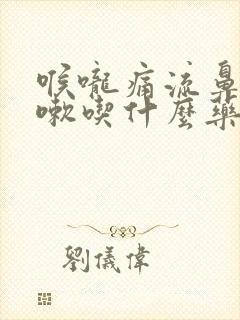 喉嚨痛流鼻
嗽喫什麼藥
劉儀偉